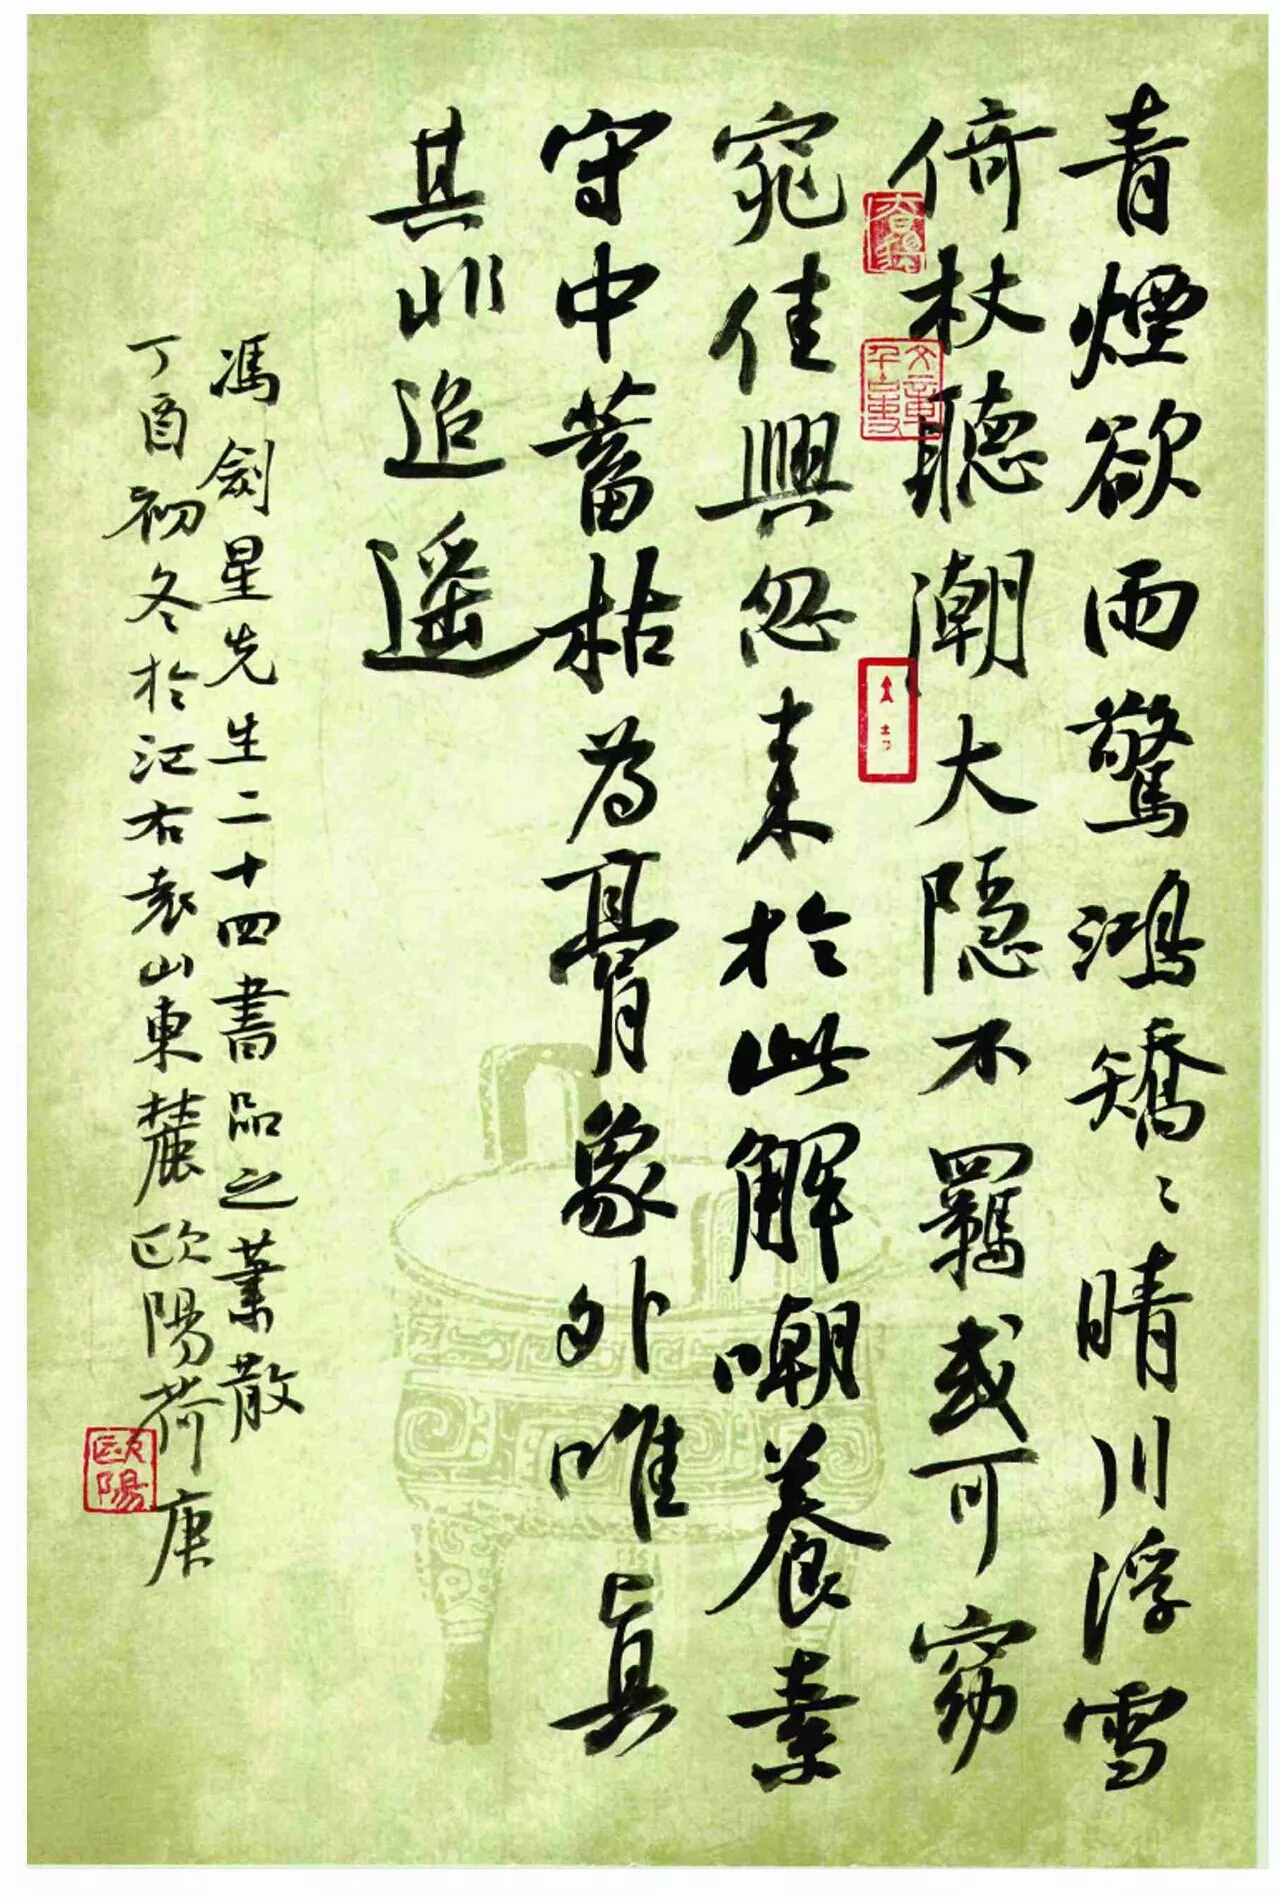 青煙欲雨驚鴻矯〻晴川浮雪
倚杖聽潮大隱不羈或可窈
窕佳興忽来於此解嘲養素
守中蓄枯為膏象外唯真
其追遥
馮劍星先生二十四書品之蕭散
丁酉初冬於江右袁山東麓歐陽荷庚
文章千古事
歐陽